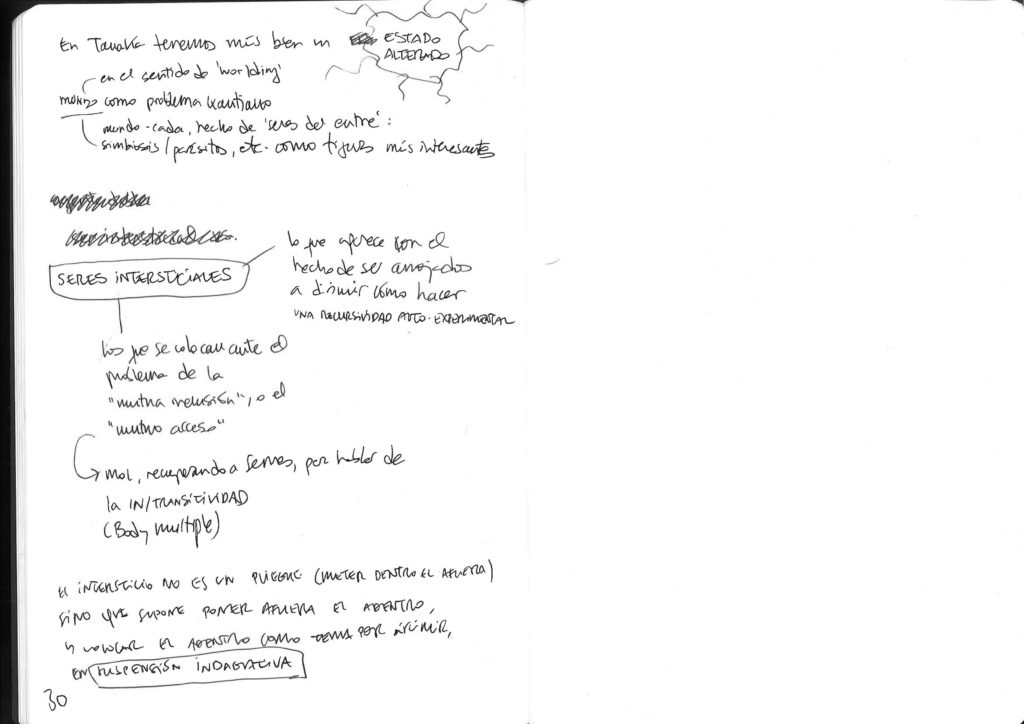 En Tanaka tenemos más bien un ESTADO
ALTERADO
en el sentido de 'worlding'
mundo como problema kantiano
mundo-cada, hecho de 'seres del entre':
simbiosis/parásitos, etc. como figuras más interesantes
SERES INTERSTICIALES
lo que aparece con el
hecho de ser arrojados
a dirimir cómo hacer
UNA RECURSIVIDAD AUTO-EXPERIMENTAL
los que se colocan ante el
problema de la
"mutua inclusión", o el
"mutuo acceso"
Mol, recuperando a Serres, por hablar de
la IN/TRANSITIVIDAD
(Body multiple)
EL INTERSTICIO NO ES UN PLIEGUE (METER DENTRO EL AFUERA)
SINO QUE SUPONE PONER AFUERA EL ADENTRO,
Y COLOCAR EL ADENTRO COMO TEMA POR DIRIMIR,
EN SUSPENSIÓN INDAGATIVA
30